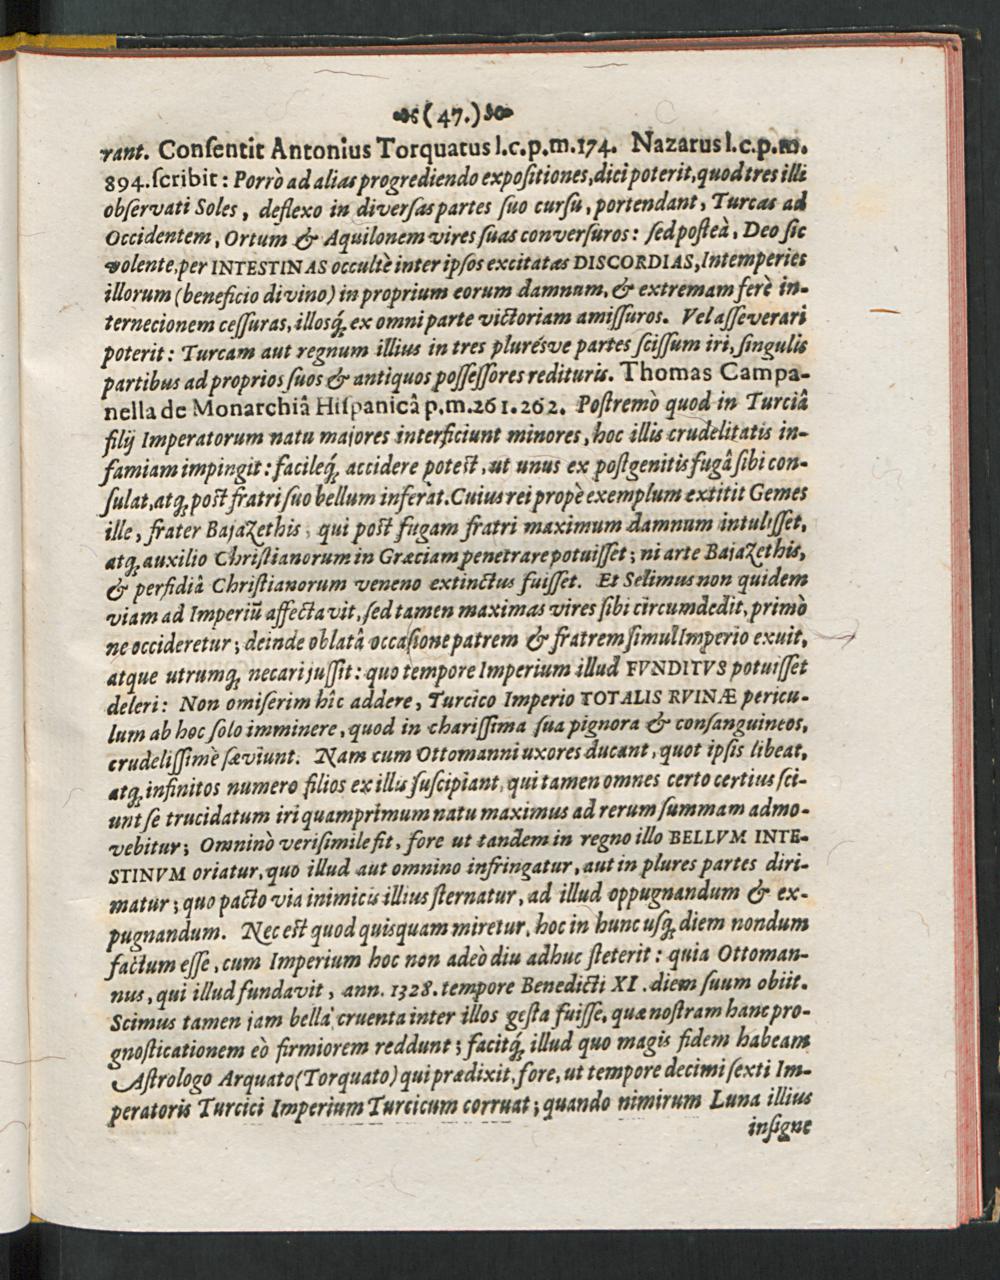 (47.)
rant. Conſentit Antonius Torquatus l.c.p.m.174. Nazarus l.c.p.m.
894.ſcribit: Porrò ad alias progrediendo expoſitiones, dici poterit, quod tres illi
obſervati Soles, deflexo in diverſas partes ſuo curſu, portendant, Turcas ad
Occidentem, Ortum & Aquilonem vires ſuas converſuros: ſed poſteà, Deo ſic
volente, per INTESTINAS occultè inter ipſos excitatas DISCORDIAS, Intemperies
illorum (beneficio divino) in proprium eorum damnum, & extremam ferè in-
ternecionem ceſſuras, illosq́; ex omni parte victoriam amiſſuros. Vel aſſeverari
poterit: Turcam aut regnum illius in tres plurésve partes ſciſſum iri, ſingulis
partibus ad proprios ſuos & antiquos poſſeſſores redituris. Thomas Campa-
nella de Monarchiâ Hiſpanicâ p.m.261.262. Poſtremò quod in Turciâ
filij Imperatorum natu majores interficiunt minores, hoc illis crudelitatis in-
famiam impingit: facileq́; accidere poteſt, ut unus ex poſtgenitis fugâ ſibi con-
ſulat, atq; poſt fratri ſuo bellum inferat. Cuius rei propè exemplum extitit Gemes
ille, frater Bajazethis, qui poſt fugam fratri maximum damnum intuliſſet,
atq; auxilio Chriſtianorum in Græciam penetrare potuiſſet; ni arte Bajazethis,
& perfidiâ Chriſtianorum veneno extinctus fuiſſet. Et Selimus non quidem
viam ad Imperiũ affectavit, ſed tamen maximas vires ſibi circumdedit, primò
ne occideretur; deinde oblatâ occaſione patrem & fratrem ſimul Imperio exuit,
atque utrumq; necari juſſit: quo tempore Imperium illud FVNDITVS potuiſſet
deleri: Non omiſerim hîc addere, Turcico Imperio TOTALIS RVINÆ pericu-
lum ab hoc ſolo imminere, quod in chariſſima ſua pignora & conſanguineos,
crudeliſſimè ſæviunt. Nam cum Ottomanni uxores ducant, quot ipſis libeat,
atq; infinitos numero filios ex illis ſuſcipiant, qui tamen omnes certo certius ſci-
unt ſe trucidatum iri quamprimum natu maximus ad rerum ſummam admo-
vebitur; Omninò veriſimile fit, fore ut tandem in regno illo BELLVM INTE-
STINVM oriatur, quo illud aut omnino infringatur, aut in plures partes diri-
matur; quo pacto via inimicis illius ſternatur, ad illud oppugnandum & ex-
pugnandum. Nec eſt quod quisquam miretur, hoc in hunc uſq; diem nondum
factum eſſe, cum Imperium hoc non adeò diu adhuc ſteterit: quia Ottoman-
nus, qui illud fundavit, ann. 1328. tempore Benedicti XI. diem ſuum obiit.
Scimus tamen jam bella cruenta inter illos geſta fuiſſe, quæ noſtram hanc pro-
gnoſticationem eò firmiorem reddunt; facitq́; illud quo magis fidem habeam
Aſtrologo Arquato (Torquato) qui prædixit, fore, ut tempore decimi ſexti Im-
peratoris Turcici Imperium Turcicum corruat; quando nimirum Luna illius
inſigne